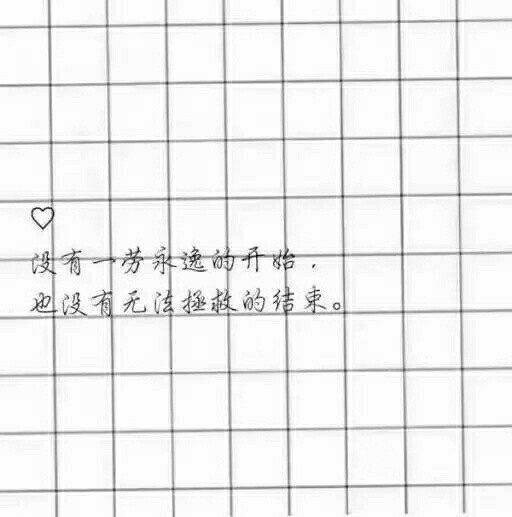 ♡
没有一劳永逸的开始，
也没有无法拯救的结束。